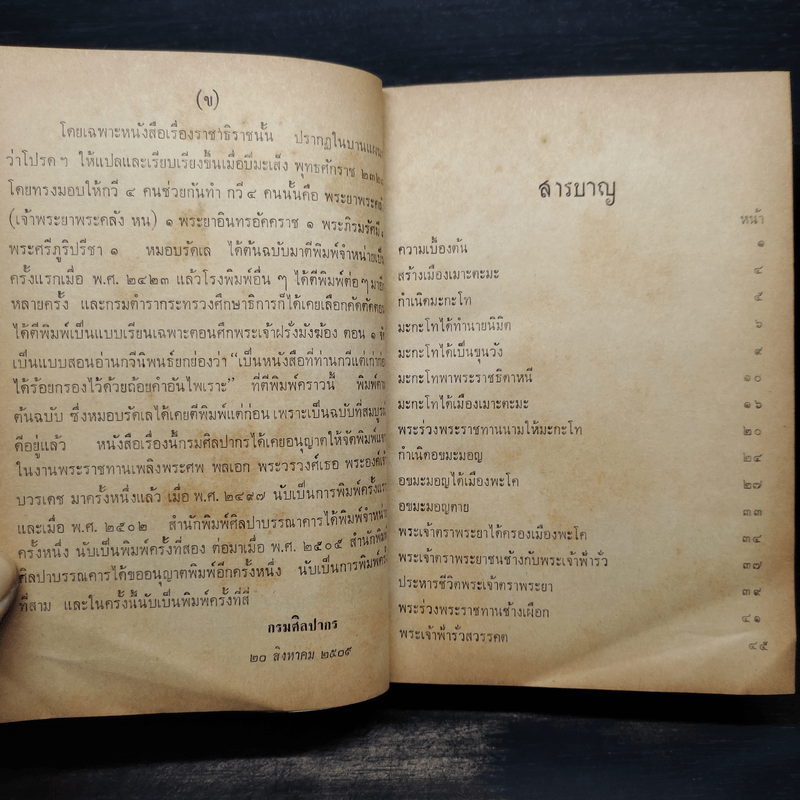 (ข)
โดยเฉพาะหนังสือเรื่องราชาธิราชนั้น ปรากฏในบานแผนก
ว่าโปรดฯ ให้แปลและเรียบเรียงขึ้นเมื่อปีมะเส็ง พุทธศักราช
โดยทรงมอบให้กวี ๔ คนช่วยกันทำ กวี ๔ คนนั้นคือ พระยาพระคลัง
(เจ้าพระยาพระคลัง หน) ๑ พระยาอินทรอัคคราช ๑ พระภิรมรัศมี
พระศรีภูริปรีชา ๑ หมอบรัดเล ได้ต้นฉบับมาตีพิมพ์จำหน่ายเป็น
ครั้งแรกเมื่อ พ.ศ. ๒๔๒๓ แล้วโรงพิมพ์อื่น ๆ ได้ตีพิมพ์ต่อๆ มาอีก
หลายครั้ง และกรมตำรากระทรวงศึกษาธิการก็ได้เคยเลือกคัดตัดตอน
ได้ตีพิมพ์เป็นแบบเรียนเฉพาะตอนศึกพระเจ้าฝรั่งมังฆ้อง ตอน ๑
เป็นแบบสอนอ่านกวีนิพนธ์ยกย่องว่า “เป็นหนังสือที่ท่านกวีแต่เก่าก่อน
ได้ร้อยกรองไว้ด้วยถ้อยคำอันไพเราะ” ที่ตีพิมพ์คราวนี้ พิมพ์ตาม
ต้นฉบับ ซึ่งหมอบรัดเลได้เคยตีพิมพ์แต่ก่อน เพราะเป็นฉบับที่สมบูรณ์
ดีอยู่แล้ว หนังสือเรื่องนี้กรมศิลปากรได้เคยอนุญาตให้จัดพิมพ์แจก
ในงานพระราชทานเพลิงพระศพ พลเอก พระวรวงศ์เธอ พระองค์เจ้า
บวรเดช มาครั้งหนึ่งแล้ว เมื่อ พ.ศ. ๒๔๙๗ นับเป็นการพิมพ์ครั้งแรก
และเมื่อ พ.ศ. ๒๕๐๒ สำนักพิมพ์ศิลปาบรรณาคารได้พิมพ์จำหน่าย
ครั้งหนึ่ง นับเป็นพิมพ์ครั้งที่สอง ต่อมาเมื่อ พ.ศ. ๒๕๐๕ สำนักพิมพ์
ศิลปาบรรณาคารได้ขออนุญาตพิมพ์อีกครั้งหนึ่ง นับเป็นการพิมพ์ครั้ง
ที่สาม และในครั้งนี้นับเป็นพิมพ์ครั้งที่สี่
กรมศิลปากร
๒๐ สิงหาคม ๒๕๐๙
สารบาญ
หน้า
ความเบื้องต้น ๑
สร้างเมืองเมาะตะมะ ๔
กำเนิดมะกะโท ๕
มะกะโทได้ทำนายนิมิต ๖
มะกะโทได้เป็นขุนวัง ๙
มะกะโทพาพระราชธิดาหนี ๑๐
มะกะโทได้เมืองเมาะตะมะ ๑๖
พระร่วงพระราชทานนามให้มะกะโท ๒๐
กำเนิดอขะมะมอญ ๒๔
อขะมะมอญได้เมืองพะโค ๒๗
อขะมะมอญตาย ๓๓
พระเจ้าตราพระยาได้ครองเมืองพะโค ๓๔
พระเจ้าตราพระยาชนช้างกับพระเจ้าฟ้ารั่ว ๓๗
ประหารชีวิตพระเจ้าตราพระยา ๓๙
พระร่วงพระราชทานช้างเผือก ๔๑
พระเจ้าฟ้ารั่วสวรรคต ๔๕